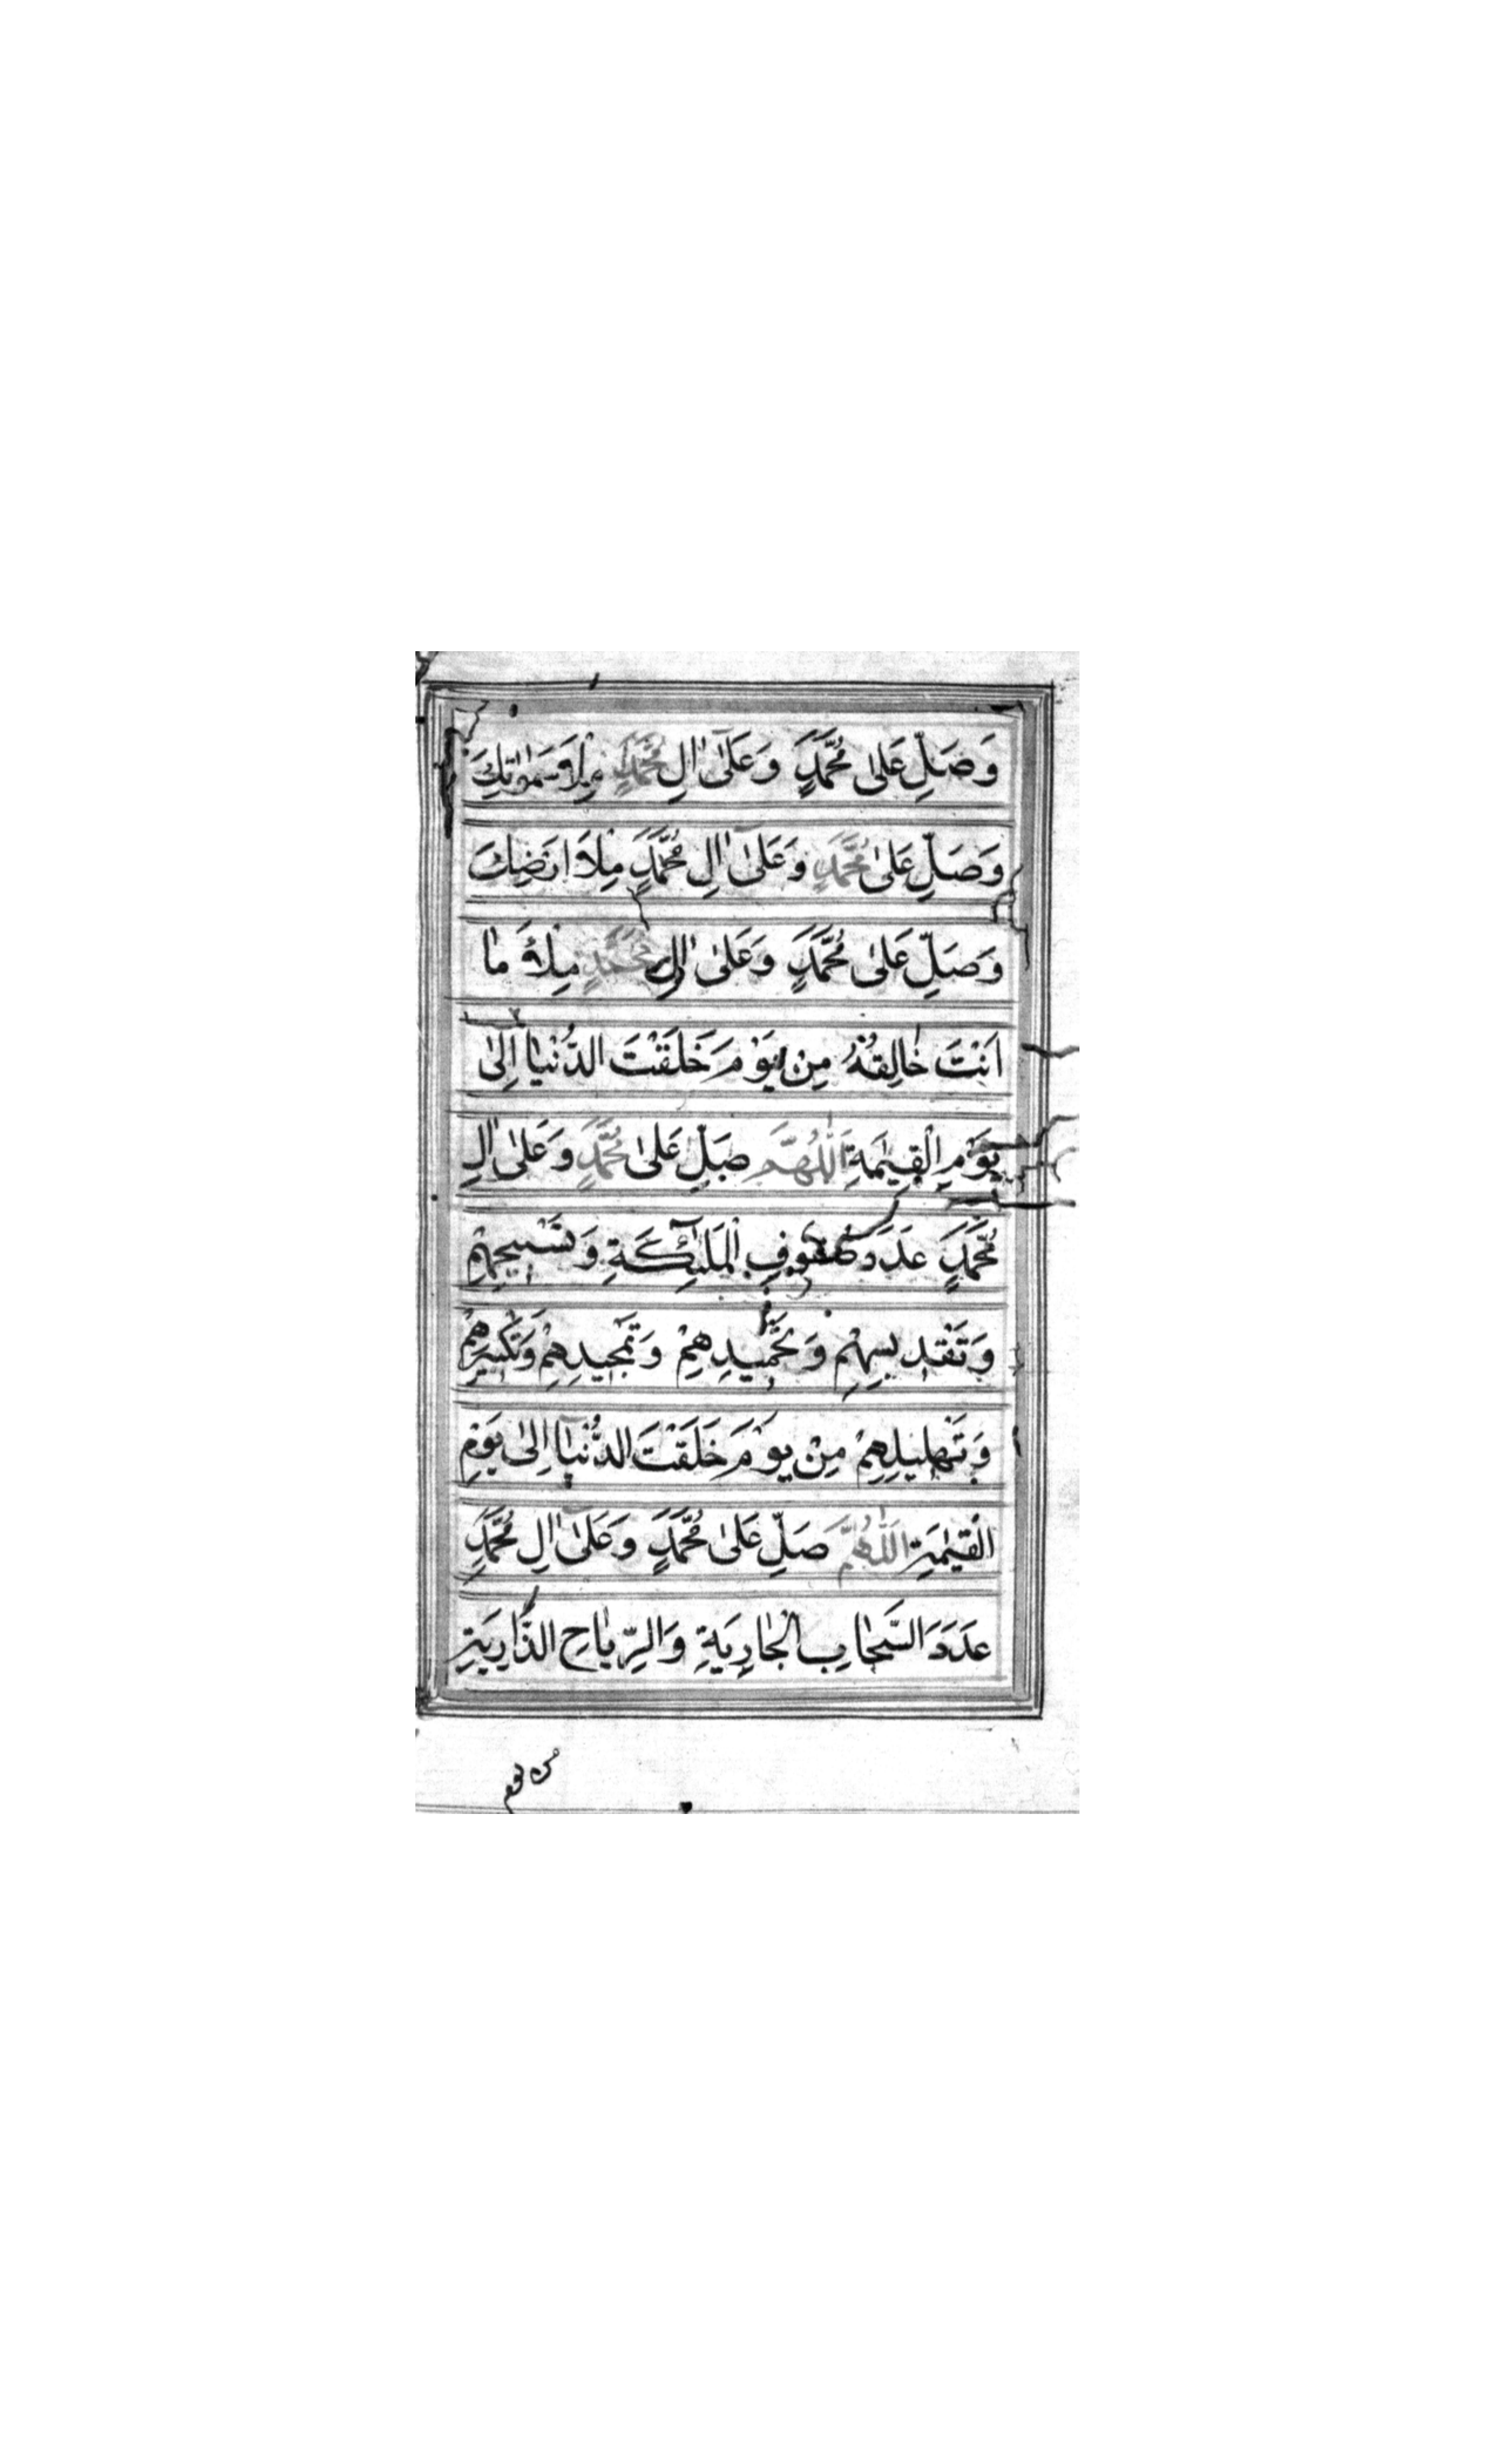 وَصَلِّ عَلىٰ مُحَمَّدٍ وَعَلىٰٓ اٰلِ مُحَمَّدٍ مِلْأَ سَمٰوٰاتِكَ
وَصَلِّ عَلىٰ مُحَمَّدٍ وَعَلىٰٓ اٰلِ مُحَمَّدٍ مِلْأَ اَرْضِكَ
وَصَلِّ عَلىٰ مُحَمَّدٍ وَعَلىٰٓ اٰلِ مُحَمَّدٍ مِلْأَ مٰا
اَنْتَ خٰالِقُهُ مِنْ يَوْمَ خَلَقْتَ الدُّنْيٰا اِلىٰ
يَوْمِ الْقِيٰمَةِ اَللّٰهُمَّ صَلِّ عَلىٰ مُحَمَّدٍ وَعَلىٰ اٰلِ
مُحَمَّدٍ عَدَدَ صُفُوفِ الْمَلٰٓئِكَةِ وَتَسْبِيحِهِمْ
وَتَقْدِيسِهِمْ وَتَحْمِيدِهِمْ وَتَمْجِيدِهِمْ وَتَكْبِيرِهِمْ
وَتَهْلِيلِهِمْ مِنْ يَوْمَ خَلَقْتَ الدُّنْيٰا اِلىٰ يَوْمِ
الْقِيٰمَةِ اَللّٰهُمَّ صَلِّ عَلىٰ مُحَمَّدٍ وَعَلىٰٓ اٰلِ مُحَمَّدٍ
عَدَدَ السَّحٰابِ الْجٰارِيَةِ وَالرِّيٰاحِ الذّٰارِيَةِ